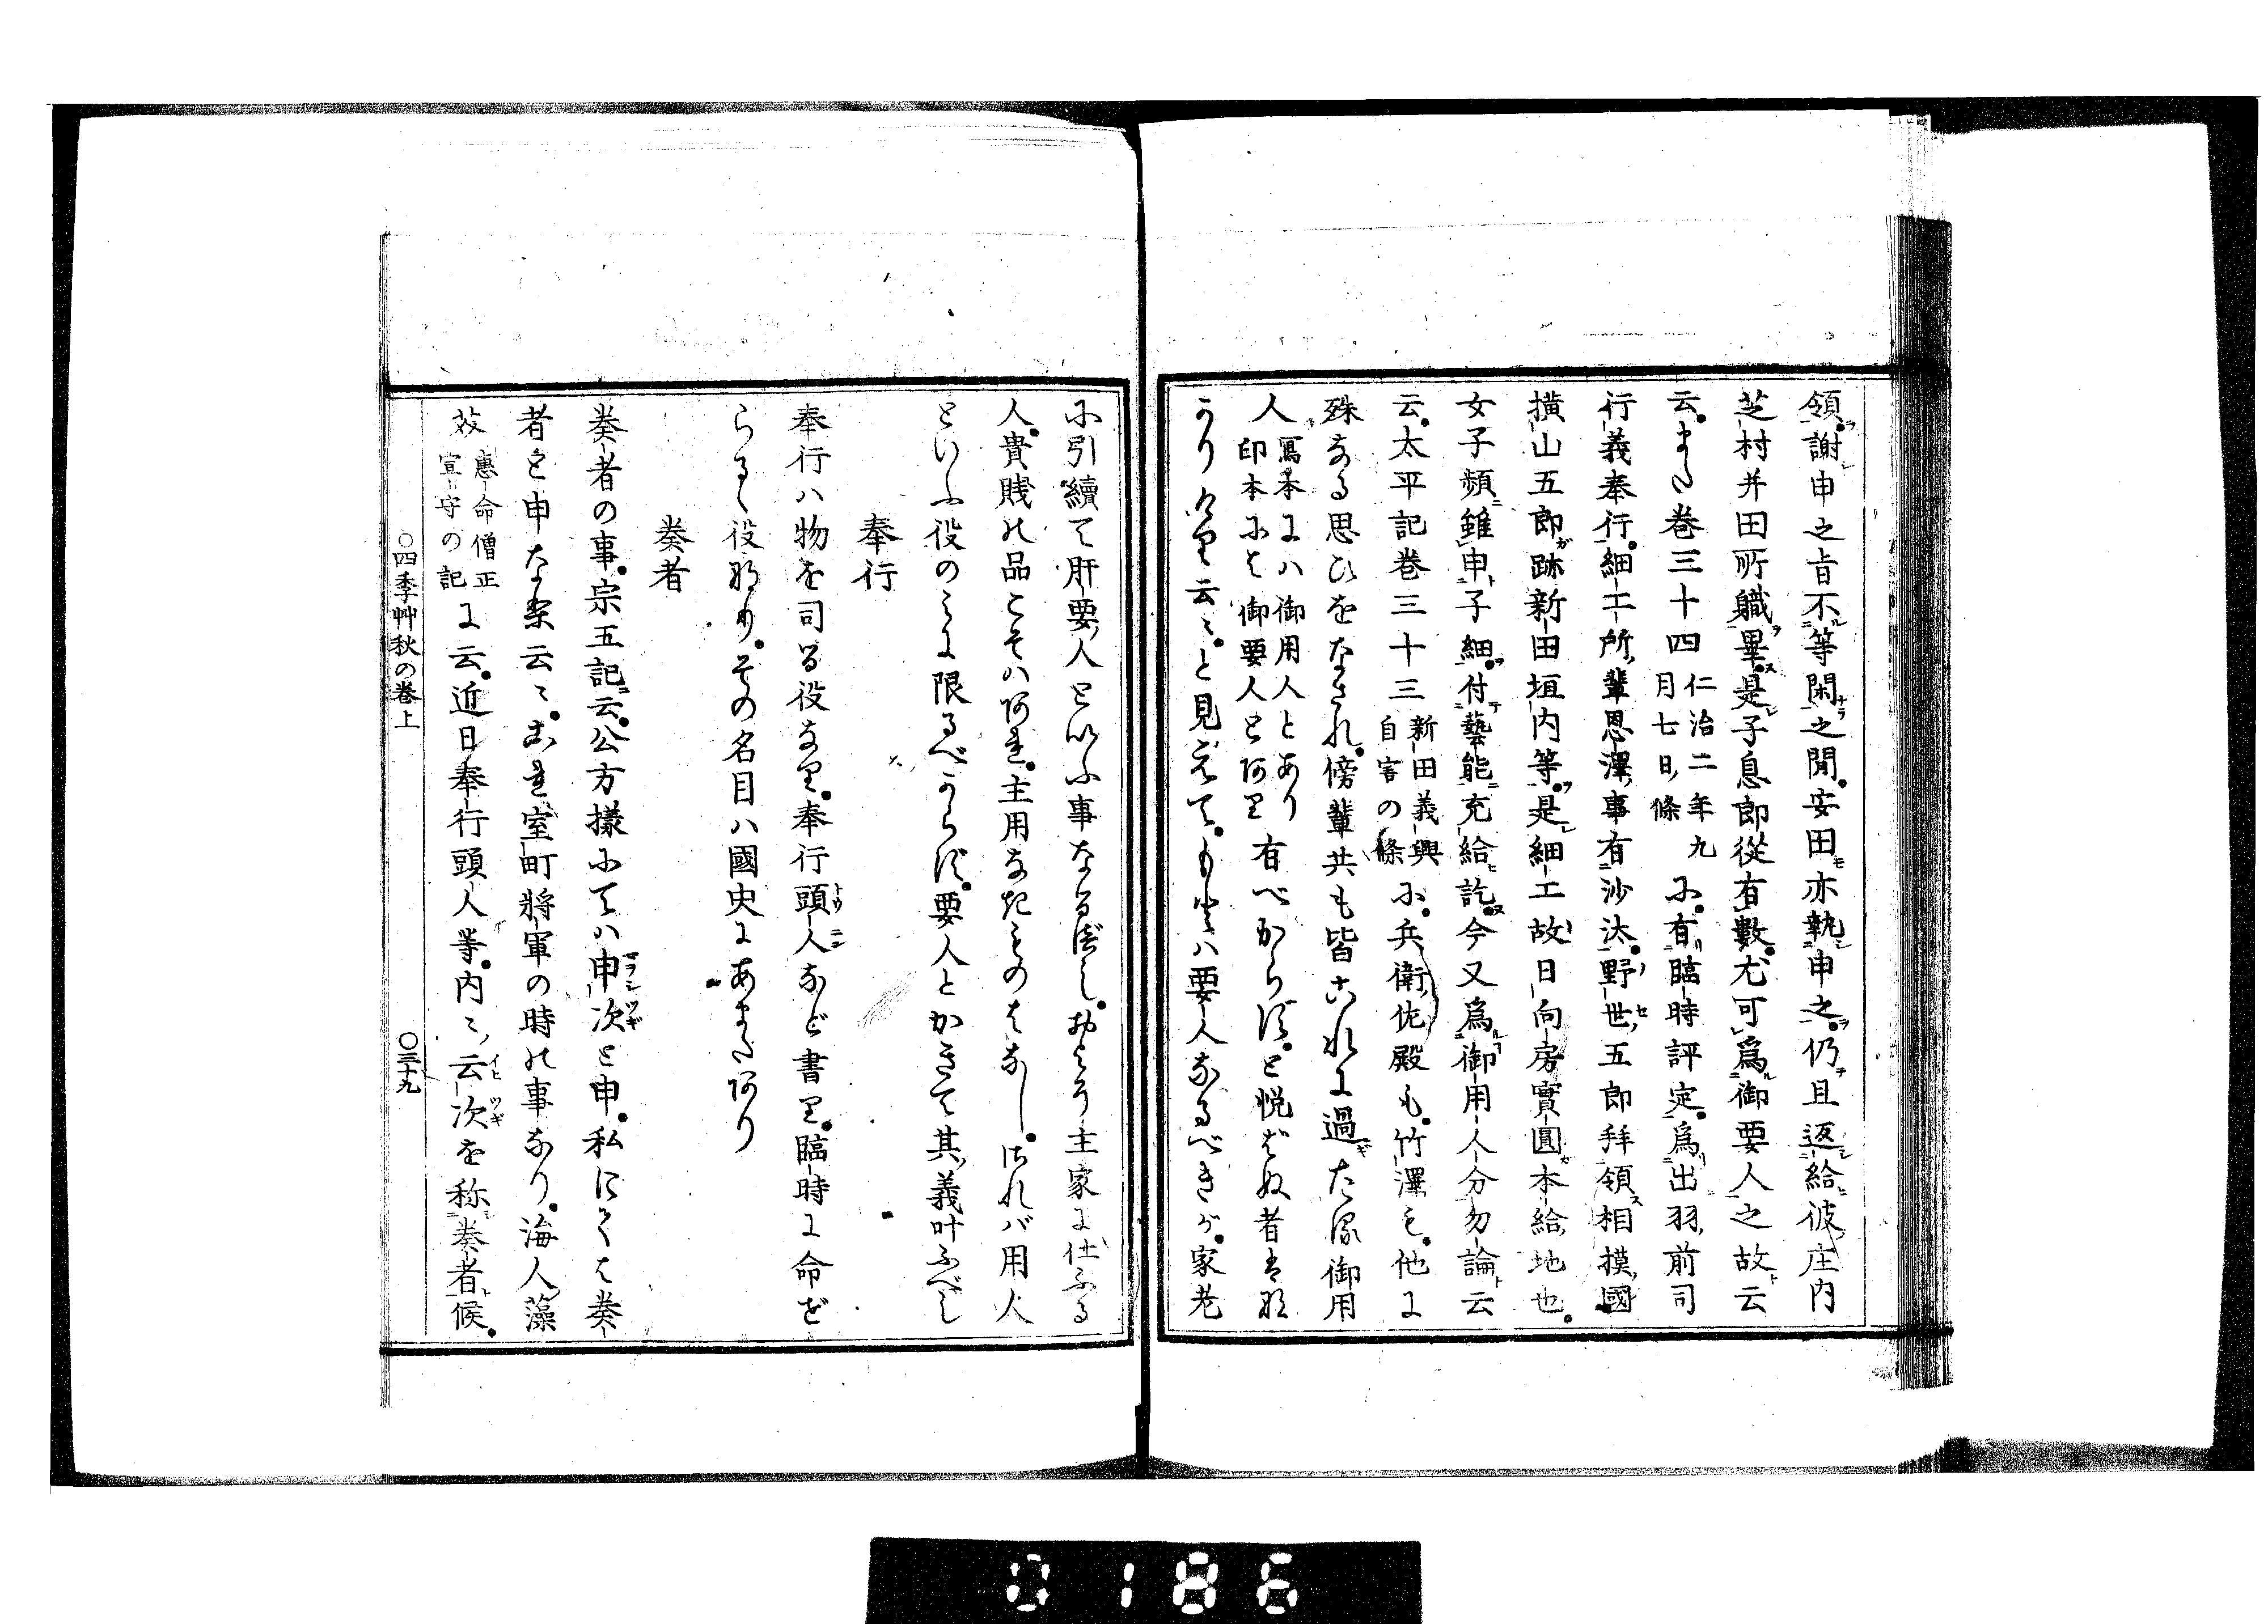 領謝申之旨不等閑之間安田亦執申之仍且返給彼庄内
芝村并田所職畢是子息郎從有數尤可爲御要人之故云
云また巻三十四仁治二年九月七日條に有臨時評定爲出羽前司
行義奉行細工所輩恩澤事有沙汰野世五郎拜領相摸國
横山五郎跡新田垣内等是細工故日向房實圓本給地也
女子頻雖申子細付藝能充給訖今又爲御用人分勿論云
云太平記巻三十三新田義興自害の條に兵衛佐殿も竹澤も他に
殊なる思ひをなされ傍輩共も皆これに過た御用
人寫本には御用人とあり印本には御要人とあり有べからずと悦ばぬ者は
かりけり云々と見えてもとは要人なるべきが家老
に引續て肝要人といふ事なるべしおよそ主家に仕ふる
人貴賤の品こそはあれ主用なきものはなしされバ用人
といふ役のみに限るべからず要人とかきて其義叶ふべし
奉行
奉行ハ物を司る役なり奉行頭人など書り臨時に命ぜ
らるゝ役ありその名目ハ國史にあまたあり
奏者
奏者の事宗五記云公方様にてハ申次と申私にてハ奏
者と申な云々これ室町將軍の時の事なり海人藻
芥惠命僧正宣守の記に云近日奉行頭人等内々云次を称奏者候
○四季艸秋の巻上
○三十九
0186